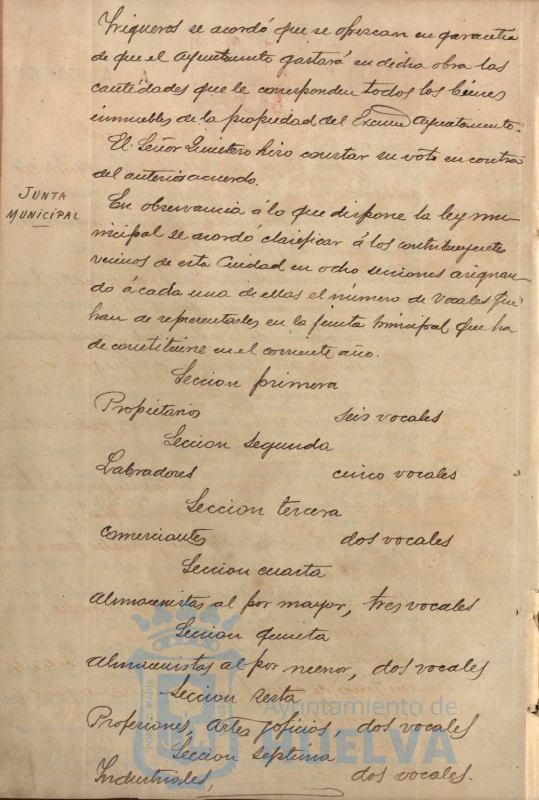 Trigueros se acordó que se ofrezcan en garantia
de que el Ayuntamiento gastará en dicha obra las
cantidades que le corresponden todos los bienes
inmuebles de la propiedad del Excmo Ayuntamiento.
El Señor Quintero hizo constar su voto en contra
del anterior acuerdo.
JUNTA
MUNICIPAL
En observancia á lo que dispone la ley mu-
nicipal se acordó clasificar á los contribuyentes
vecinos de esta Ciudad en ocho secciones asignan-
do á cada una de ellas el número de vocales que
han de representarles en la junta municipal que ha
de constituirse en el corriente año.
Seccion primera
Propietarios seis vocales
Seccion segunda
Labradores cinco vocales
Seccion tercera
Comerciantes dos vocales
Seccion cuarta
Almacenistas al por mayor, tres vocales
Seccion quinta
Almacenistas al por menor, dos vocales
Seccion sexta
Profesiones, artes y oficios, dos vocales
Seccion septima
Industriales, dos vocales.
Ayuntamiento de
HUELVA